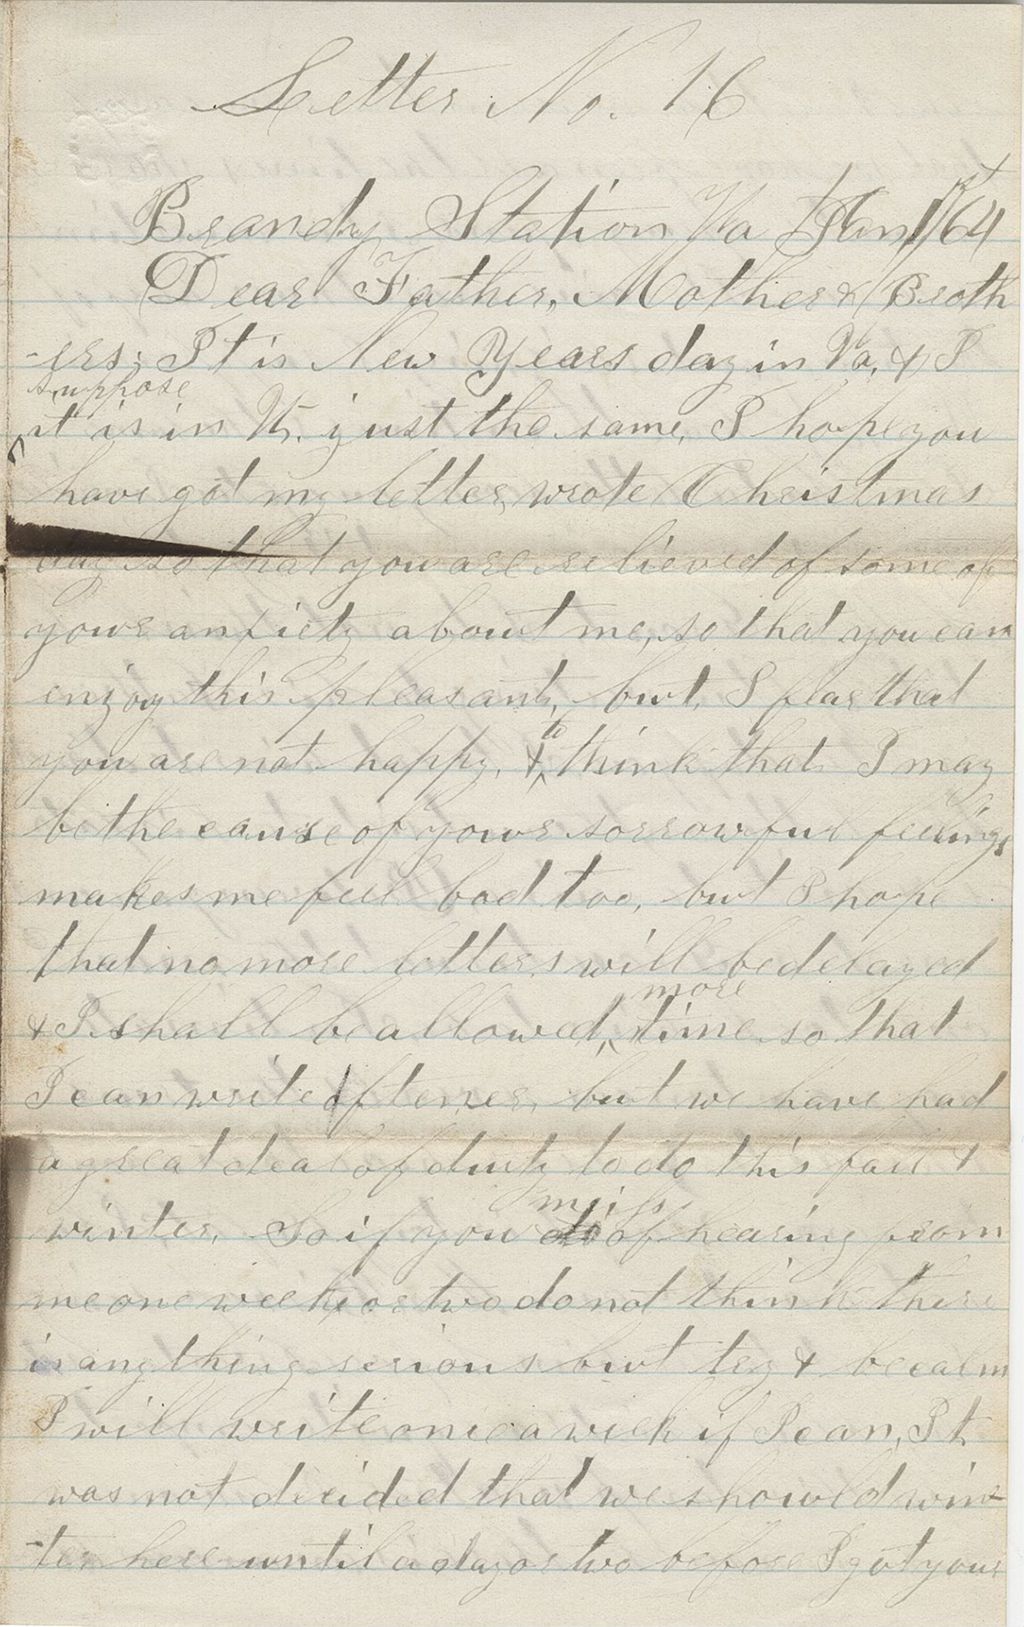 Letter No. 16
Brandy Station Va Jan 1st/64
Dear Father, Mother & Broth
-ers; It is New Years day in Va, & I
suppose
it is in Vt. just the same, I hope you
have got my letter, wrote Christmas
day so that you are relieved of some of
your anxiety about me, so that you can
enjoy this pleasant, but, I fear that
you are not happy, & to think that I may
be the cause of your sorrowful feelings
makes me feel bad too, but I hope
that no more letters will be delayed
more
& I shall be allowed, time so that
I can write oftener, but we have had
a great deal of duty to do this fall &
winter, So if you
miss
of hearing from
me one week, or two do not think there
is anything serious but try & be calm
I will write once a week if I can, It
was not decided that we showed win-
-ter here until a day or two before I got your